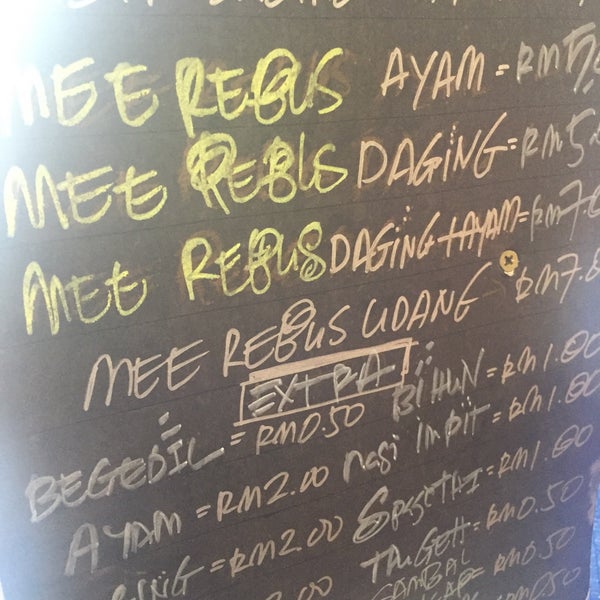 MEE REBUS AYAM = RM5
MEE REBUS DAGING = RM5
MEE REBUS DAGING + AYAM = RM7.0
MEE REBUS UDANG RM7.0
EXTRA
BEGEDIL = RM0.50 BIHUN = RM1.00
AYAM = RM2.00 nasi impit = RM1.00
= RM2.00 = RM1.00
TAUGEH = RM0.50
SAMBAL RM0.50
RM0.50